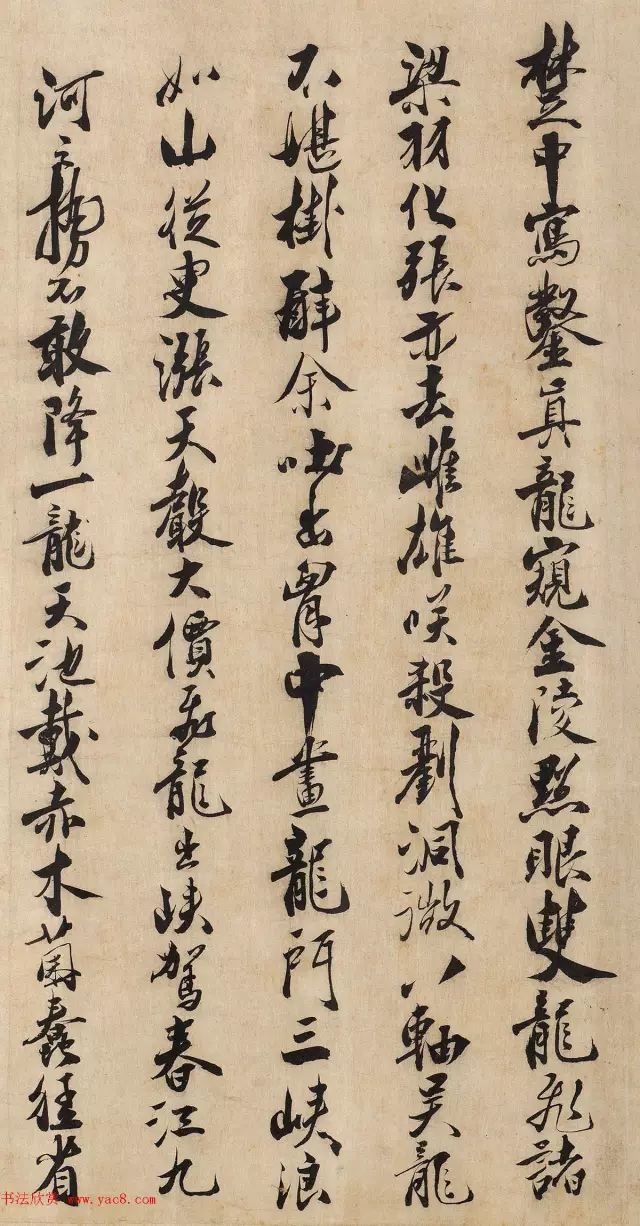 楚中寫鑿真龍窺金陵點眼雙龍飛諸
梁羽化張亦去雌雄咲殺劉洞微八軸吳龍
不堪掛醉余吐出胷中畫龍門三峽浪
如山從臾漲天聲大價飛龍出峽駕春江九
河之勢不敢降一龍天池戴赤木菌蠢省
书法欣赏 www.yac8.com